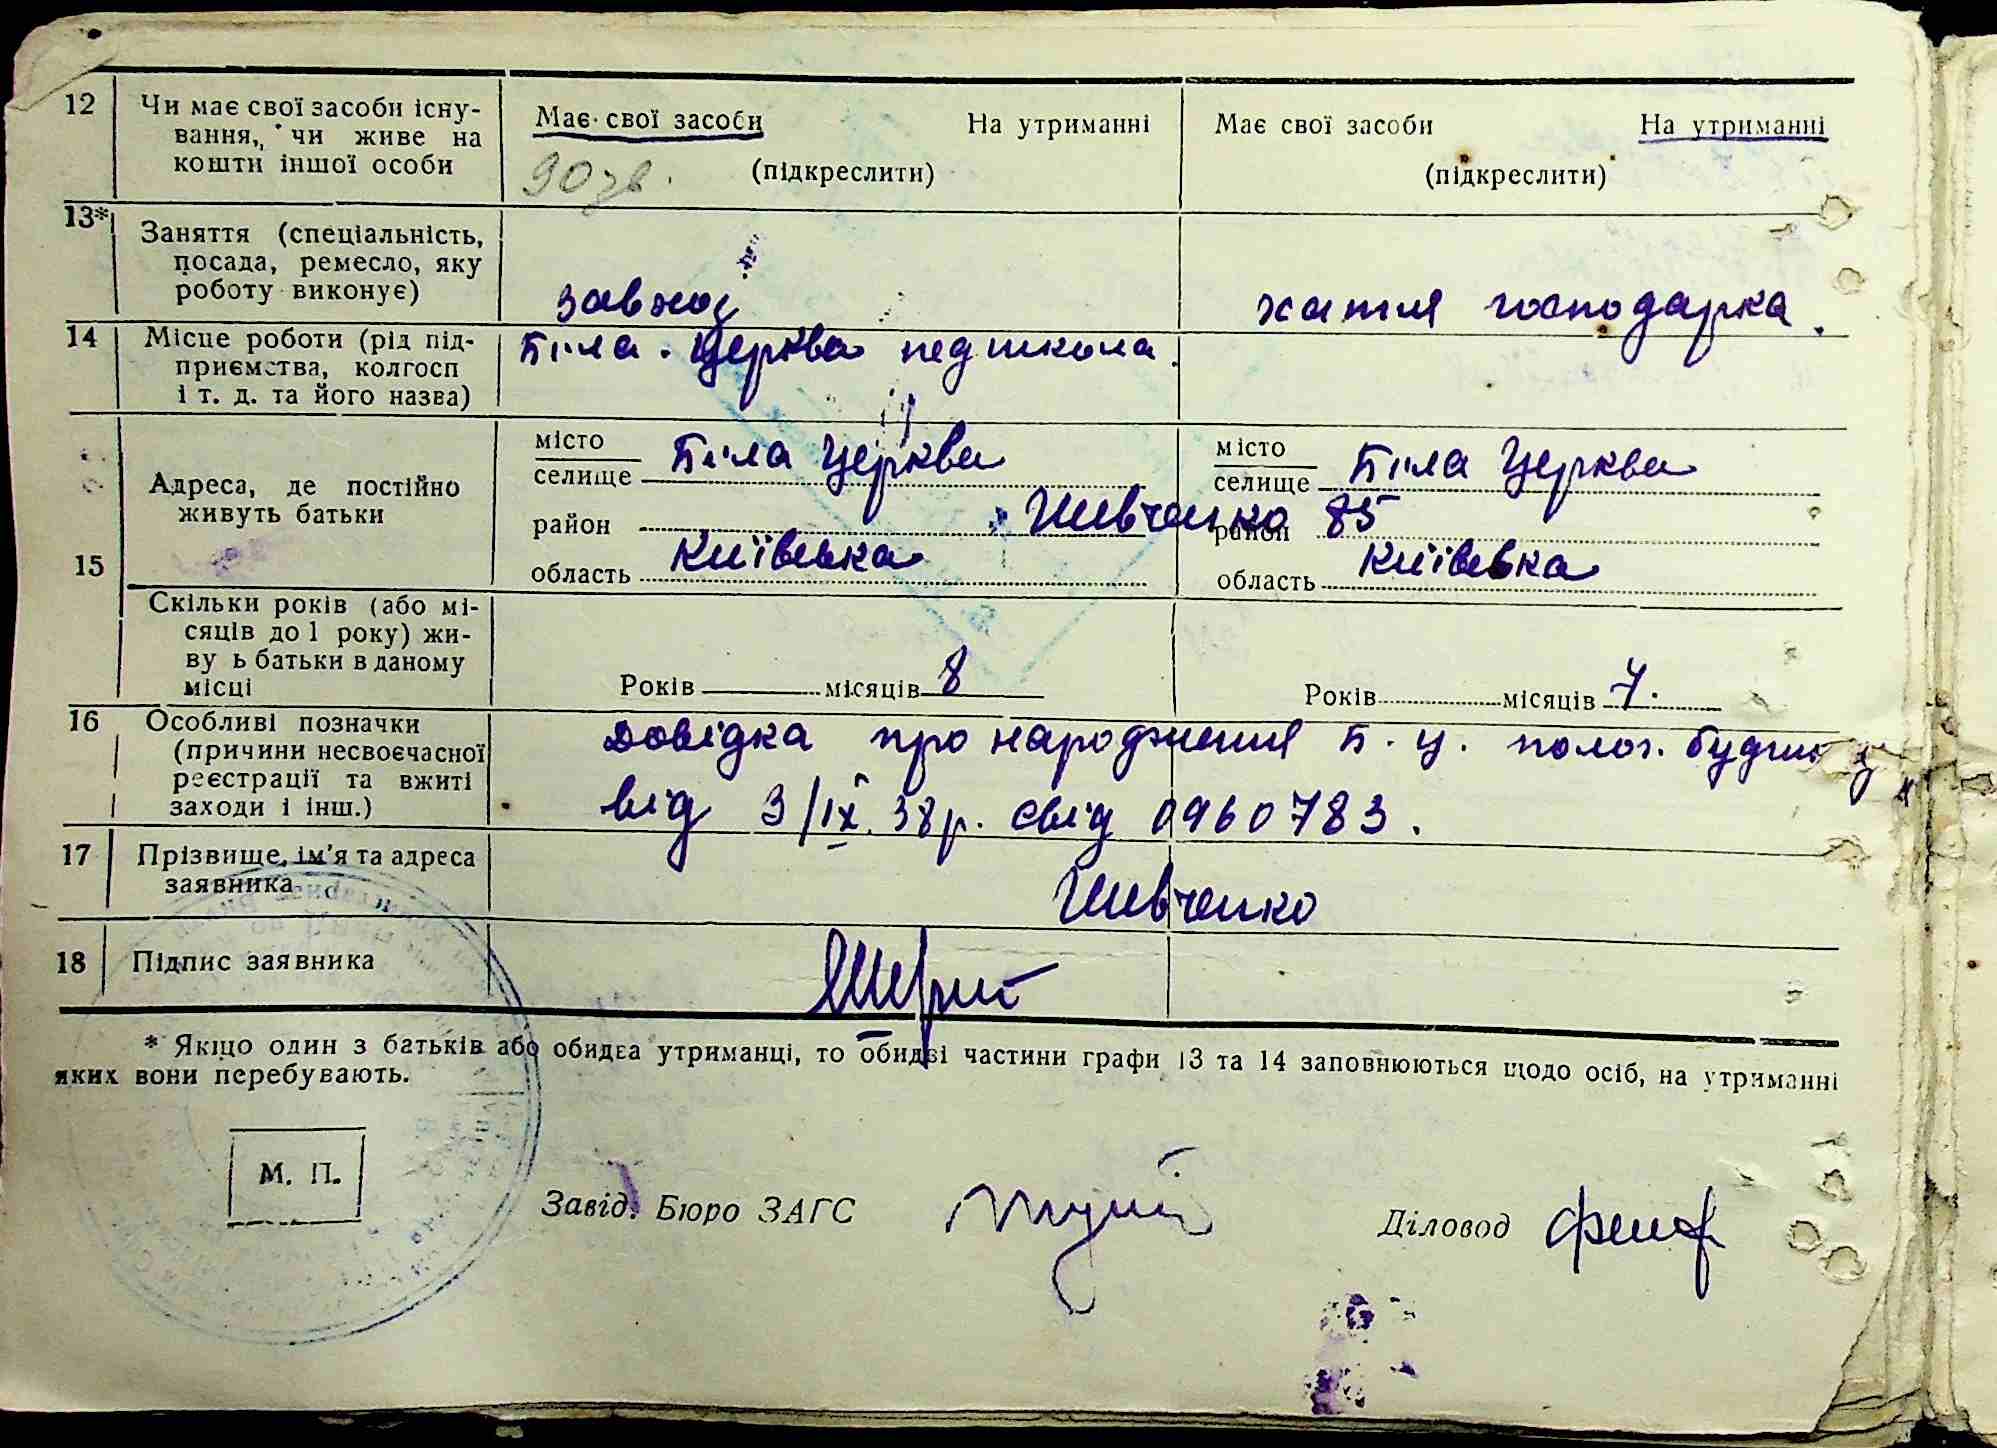 12 Чи має свої засоби існу-
вання, чи живе на
кошти іншої особи
Має свої засоби На утриманні
(підкреслити)
Має свої засоби На утриманні
(підкреслити)
13* Заняття (спеціальність,
посада, ремесло, яку
роботу виконує)
завхоз
хатня господарка.
14 Місце роботи (рід під-
приємства, колгосп
і т. д. та його назва)
Біла. Церква педшкола.
15 Адреса, де постійно
живуть батьки
місто
селище Біла Церква
район Шевченко 85
область Київська
місто
селище Біла Церква
район
область Київська
Скільки років (або мі-
сяців до 1 року) жи-
ву ь батьки в даному
місці
Років місяців 8
Років місяців 7.
16 Особливі позначки
(причини несвоєчасної
реєстрації та вжиті
заходи і інш.)
Довідка про народження Б. Ц. полог. будинку
від 3/IX 38р. свід 0960783.
17 Прізвище, ім'я та адреса
заявника
Шевченко
18 Підпис заявника
* Якщо один з батьків або обидва утриманці, то обидві частини графи 13 та 14 заповнюються щодо осіб, на утриманні
яких вони перебувають.
М. П.
Завід. Бюро ЗАГС
Діловод